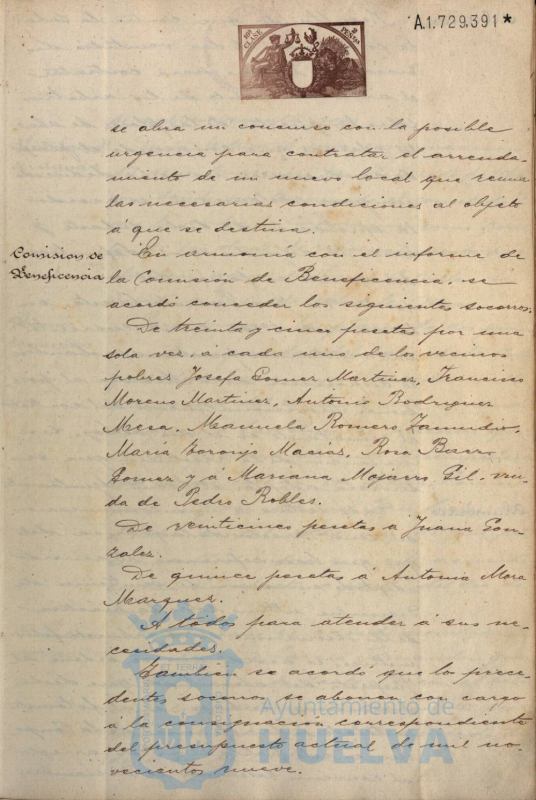 A.1.729,391*
10ª CLASE
2 PESETAS
se abra un concurso con la posible
urgencia para contratar el arrenda-
miento de un nuevo local que reuna
las necesarias condiciones al objeto
á que se destina.
Comision de
Beneficencia
En armonía con el informe de
la Comisión de Beneficencia, se
acordó conceder los siguientes socorros:
De treinta y cinco pesetas por una
sola vez, á cada uno de los vecinos
pobres Josefa Gomez Martinez, Francisco
Moreno Martinez, Antonio Rodriguez
Mesa, Manuela Romero Zamudio,
María Toronjo Macias, Rosa Barro
Gomez y á Mariana Mojarro Gil, viu-
da de Pedro Robles.
De veinticinco pesetas a Juana Gon-
zalez.
De quince pesetas á Antonia Mora
Marquez.
A todos para atender á sus ne-
cesidades.
Tambien se acordó que los prece-
dentes socorros se abonen con cargo
á la consignación correspondiente
del presupuesto actual de mil no-
vecientos nueve.
Ayuntamiento de
HUELVA